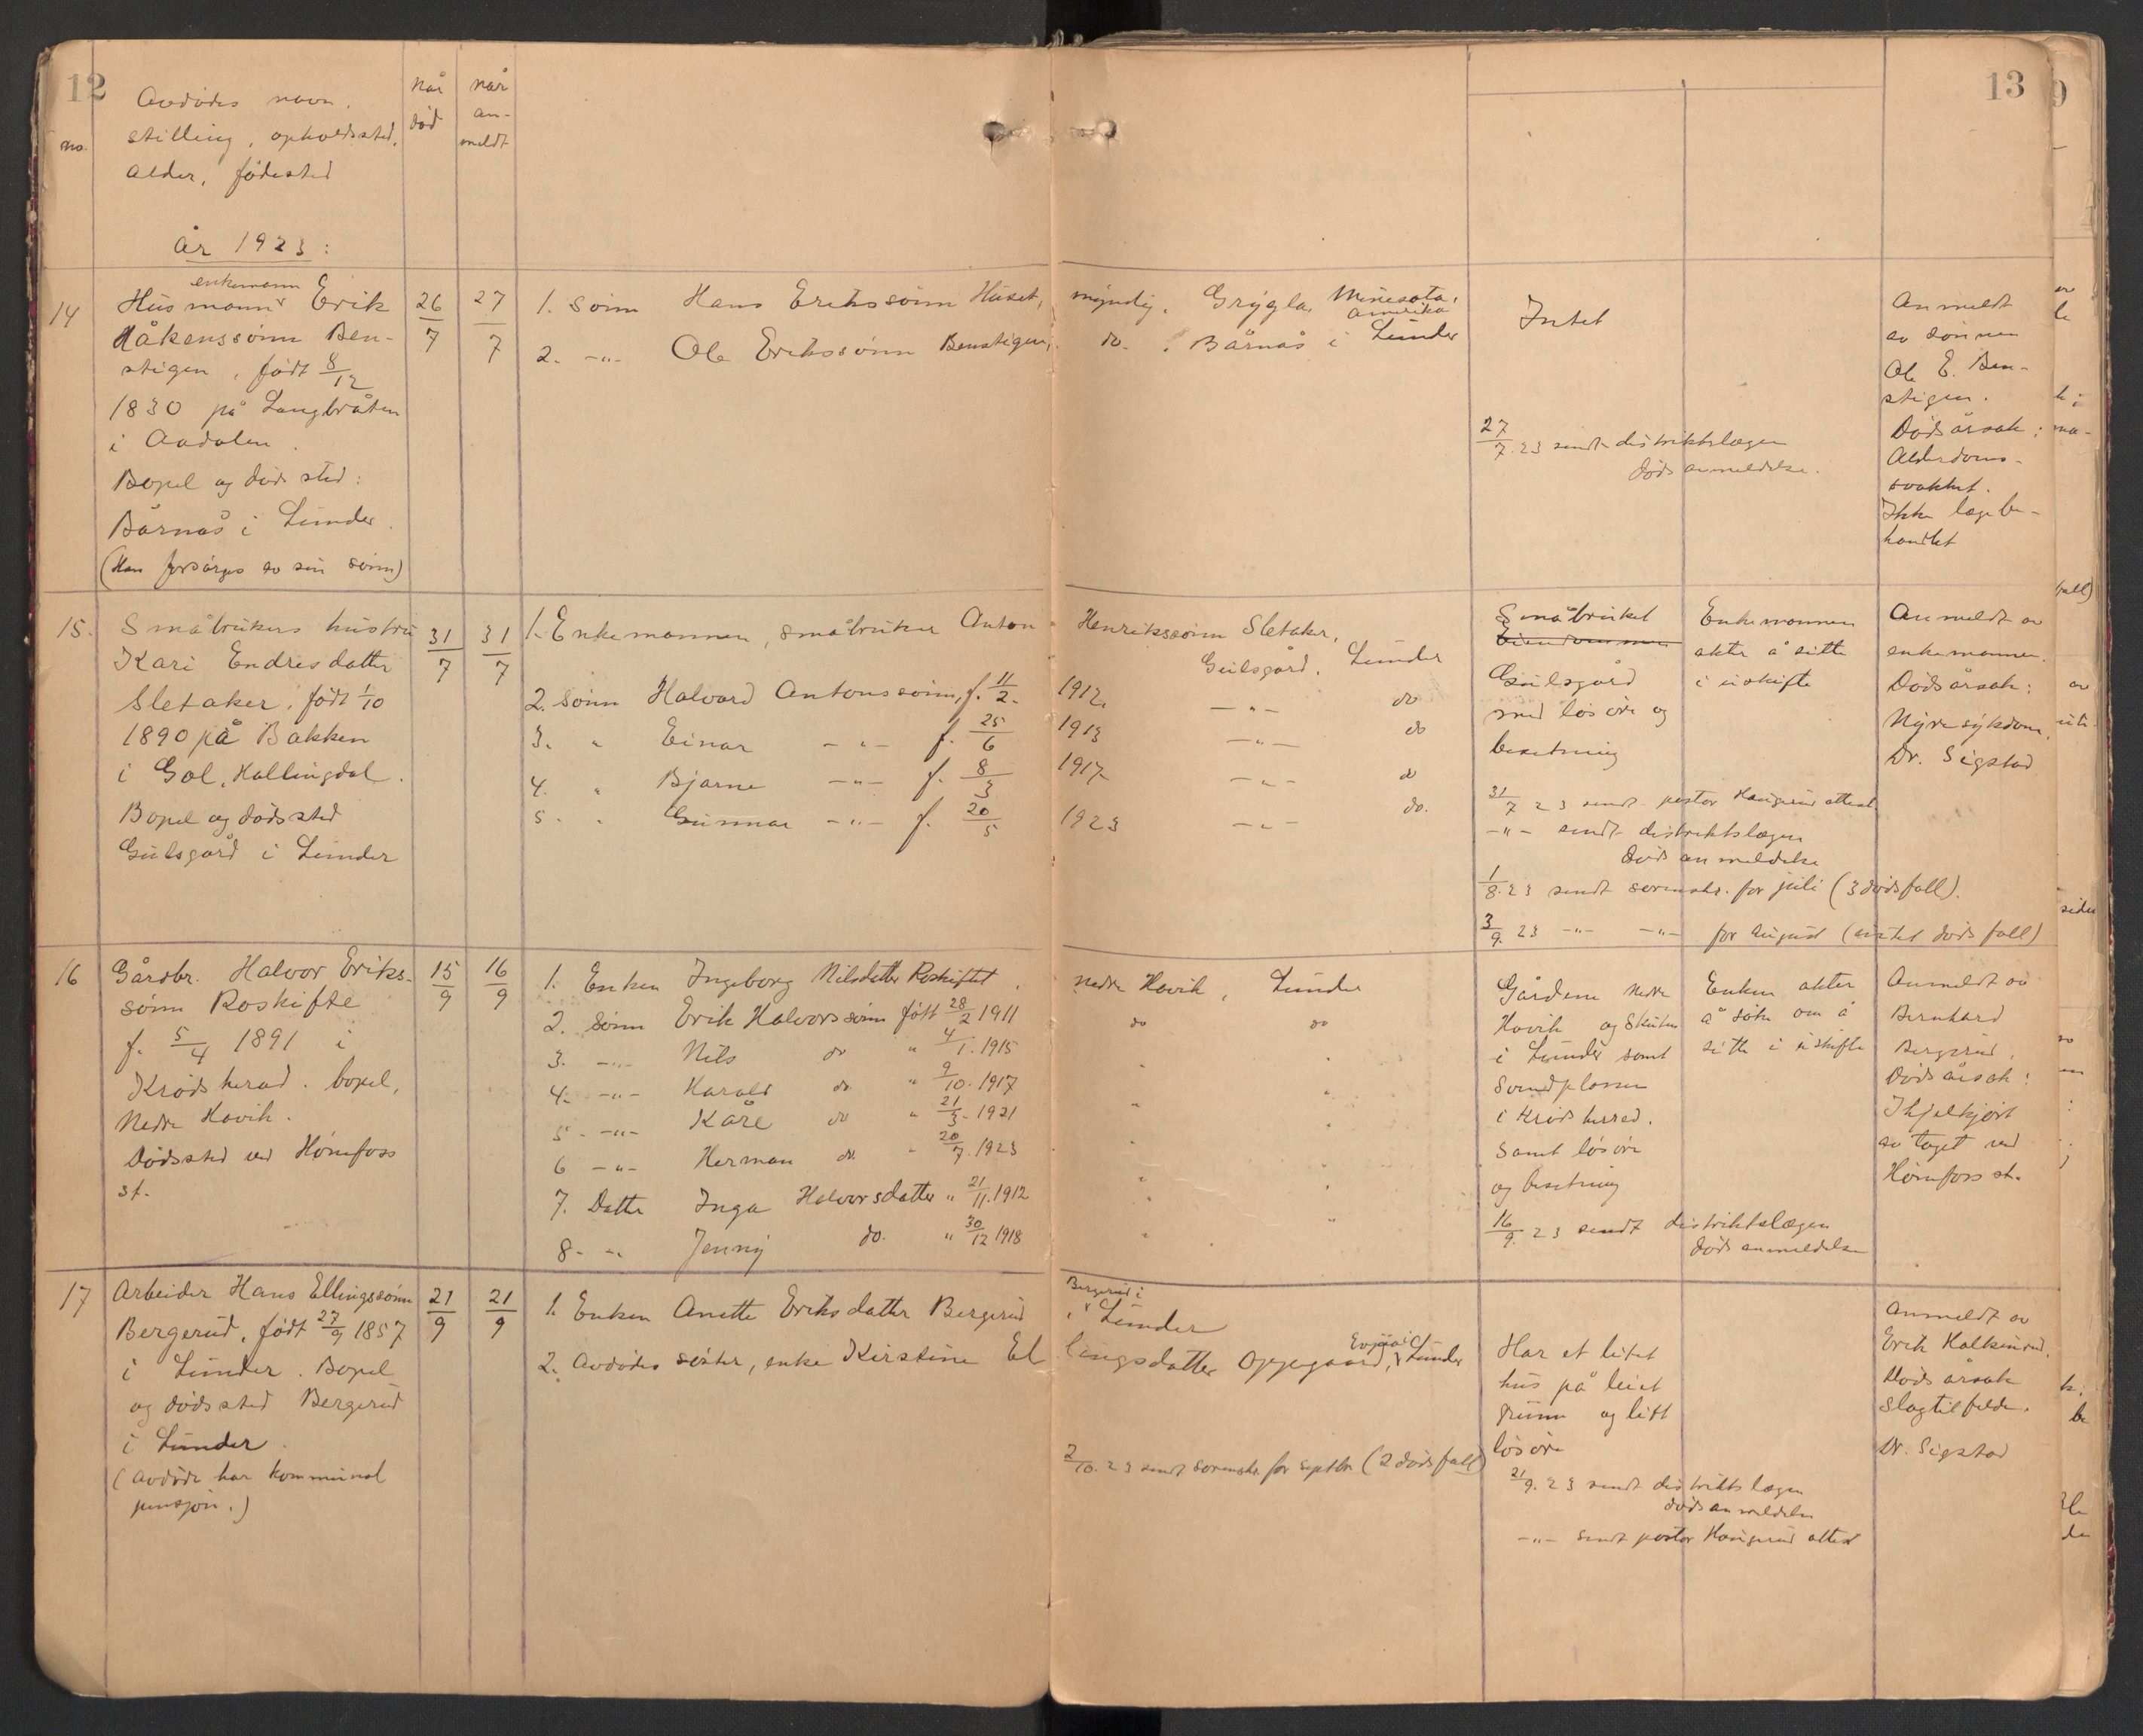 12
13
no.
Avdødes navn,
stilling, opholdssted,
alder, fødested
når
død
når
an-
meldt
år 1923:
14
enkemann
Husmann Erik
Håkenssønn Ben-
stigen, født 8/12
1830 på Langbråten
i Aadalen.
Bopel og dødssted:
Bårnås i Lunder.
(Han forsørges av sin sønn)
26/7
27/7
1. sønn Hans Erikssønn Huset, myndig. Grygla, Minesota,
Amerika
2. -"- Ole Erikssønn Benstigen, do. Bårnås i Lunder
Intet
27/7.23 sendt distriktslægen
dødsanmeldelse.
Anmeldt
av sønnen
Ole E. Ben-
stigen.
Dødsårsak:
Alderdoms-
svakhet.
Ikke lægebe-
handlet
15.
Småbrukers hustru
Kari Endresdatter
Sletaker, født 1/10
1890 på Bakken
i Gol, Hallingdal.
Bopel og dødssted
Gulsgård i Lunder
31/7
31/7
1. Enkemannen, småbruker Anton Henrikssønn Sletaker,
Gulsgård, Lunder
2. sønn Halvard Antonssønn, f. 11/2. 1912. -"- do
3. " Einar -"- f. 25/6 1913 -"- do
4. " Bjarne -"- f. 8/3 1917 -"- do
5. " Gunnar -"- f. 20/5 1923 -"- do.
Småbruket
Eiendommen
Gulsgård
med løsøre og
besetning
Enkemannen
akter å sitte
i uskifte
Anmeldt av
enkemannen.
Dødsårsak:
Nyresykdom,
Dr. Sigstad
31/7 23 sendt pastor Haugerud attest
-"- sendt distriktslægen
dødsanmeldelse
1/8.23 sendt sorenskr. for juli (3 dødsfall).
3/9.23 -"- -"- for august (intet dødsfall)
16
Gårdbr. Halvor Eriks-
sønn Roskifte
f. 5/4 1891 i
Krødsherad. bopel,
Nedre Hovik.
Dødssted ved Hønefoss
st.
15/9
16/9
1. Enken Ingeborg Nilsdatter Roskiftet, nedre Hovik, Lunder
2. sønn Erik Halvorssønn født 28/2 1911 do do
3. -"- Nils do " 4/1. 1915 " "
4. -"- Harald do. " 9/10. 1917 " "
5. -"- Kåre do " 21/3. 1921 " "
6 -"- Herman do. " 20/7. 1923 " "
7. Datter Inga Halvorsdatter " 21/11. 1912 " "
8. -"- Jenny do. " 30/12 1918 " "
Gårdene nedre
Hovik og
i Lunder samt
i Krødsherred.
samt løsøre
og besetning
Enken akter
å søke om å
sitte i uskifte
Anmeldt av
Bernhard
Bergerud.
Dødsårsak:
Ihjelkjørt
av toget ved
Hønefoss st.
16/9.23 sendt distriktslægen
dødsanmeldelse
17
Arbeider Hans Ellingssønn
Bergerud, født 27/9 1857
i Lunder. Bopel
og dødssted Bergerud
i Lunder.
(avdøde har kommunal
pensjon.)
21/9
21/9
Bergerud i
1. Enken Anette Eriksdatter Bergerud, Lunder
2. Avdødes søster, enke Kirstine Ellingsdatter Oppegaard, Lunder
2/10.23 sendt sorenskr. for septbr (2 dødsfall)
Har et litet
hus på leiet
grunn og litt
løsøre
21/9.23 sendt distriktslægen
dødsanmeldelse
-"- sendt pastor Haugerud attest
Anmeldt av
Erik Halkinrud.
Dødsårsak
slagtilfelde.
Dr. Sigstad